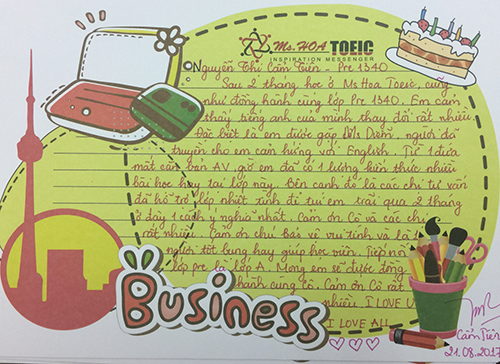 Ms. HOA TOEIC
INSPIRATION MESSENGER
Nguyễn Thị Cẩm Tiên - Pre 1340
Sau 2 tháng học ở Ms Hoa Toeic, cũng
như đồng hành cùng lớp Pre 1340. Em cảm
thấy tiếng anh của mình thay đổi rất nhiều.
Đặc biệt là em được gặp Ms Duyên, người đã
truyền cho em cảm hứng với English. Từ 1 đứa
mất căn bản AV, giờ em đã có 1 lượng kiến thức nhiều
bài học hay tại lớp này. Bên cạnh đó là các chị tư vấn
đã hỗ trợ lớp nhiệt tình để tụi em trải qua 2 tháng
ở đây 1 cách ý nghĩa nhất. Cảm ơn Cô và các chị
rất nhiều. Cảm ơn chú Bảo vệ vui tính và là 1
người tốt bụng hay giúp học viên. Tiếp nối
lớp pre là lớp A. Mong em sẽ được đồng
hành cùng cô. Cảm ơn Cô rất
nhiều I LOVE U
I LOVE ALL
Business
Cẩm Tiên
21.08.2017